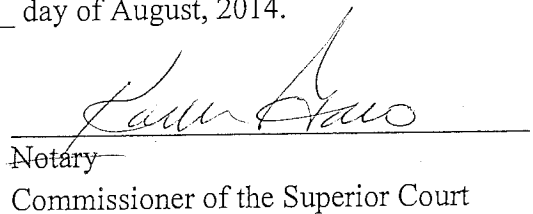 _ day of August, 2014.
Karen
Notary
Commissioner of the Superior Court